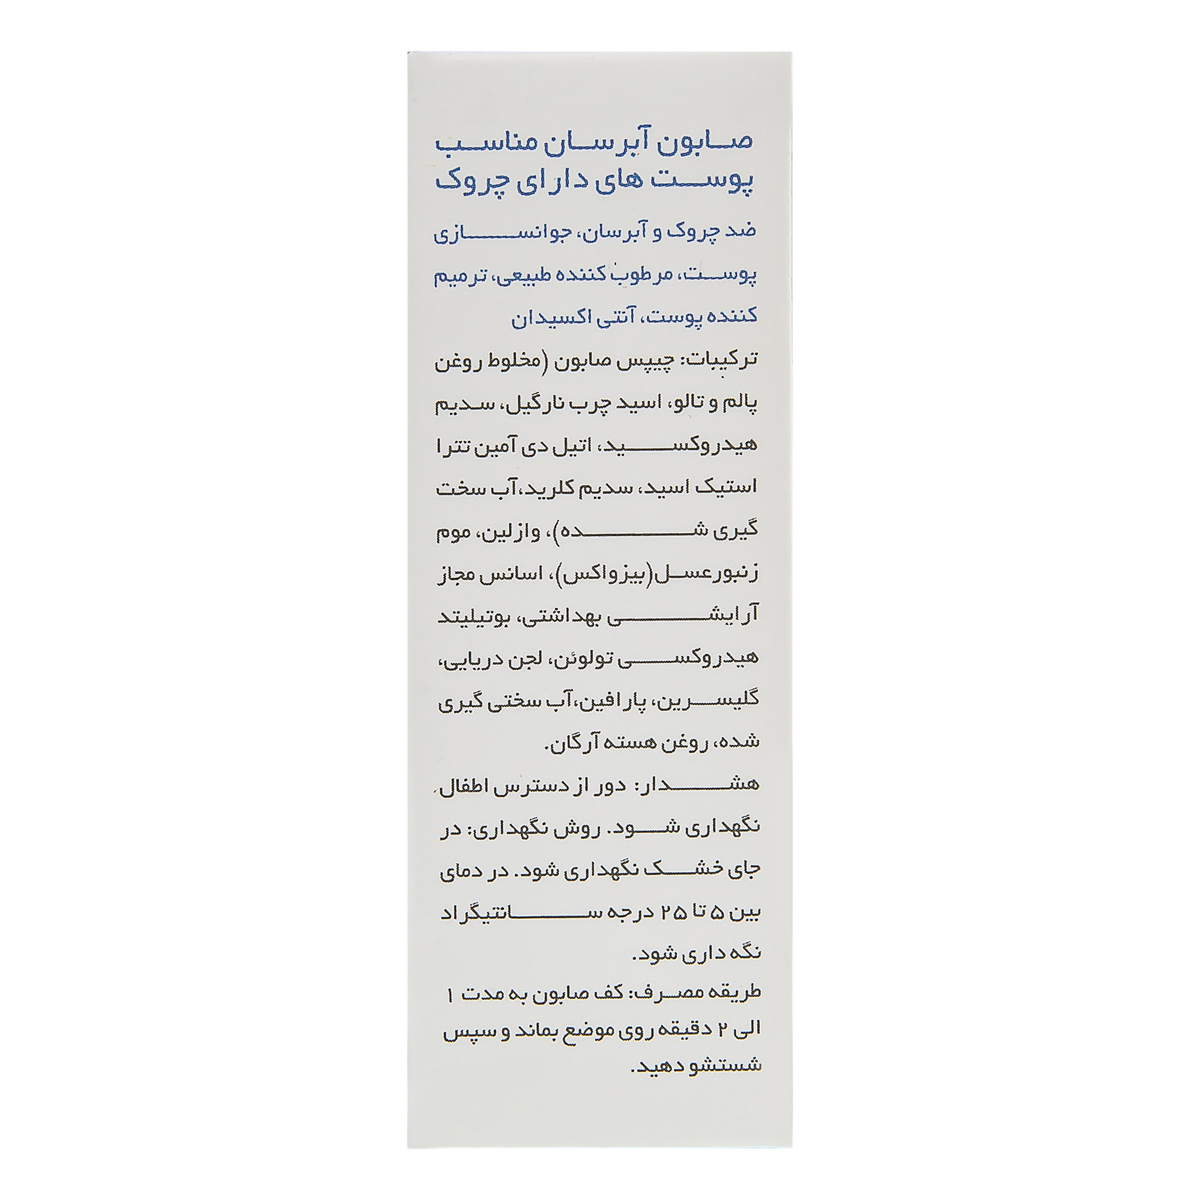 صابون آبرسان مناسب
پوست های دارای چروک
ضد چروک و آبرسان، جوانسازی
پوست، مرطوب کننده طبیعی، ترمیم
کننده پوست، آنتی اکسیدان
ترکیبات: چیپس صابون (مخلوط روغن
پالم و تالو، اسید چرب نارگیل، سدیم
هیدروکسید، اتیل دی آمین تترا
استیک اسید، سدیم کلرید،آب سخت
گیری شده)، وازلین، موم
زنبورعسل(بیزواکس)، اسانس مجاز
آرایشی بهداشتی، بوتیلیتد
هیدروکسی تولوئن، لجن دریایی،
گلیسرین، پارافین،آب سختی گیری
شده، روغن هسته آرگان.
هشدار: دور از دسترس اطفال
نگهداری شود. روش نگهداری: در
جای خشک نگهداری شود. در دمای
بین ۵ تا ۲۵ درجه سانتیگراد
نگه داری شود.
طریقه مصرف: کف صابون به مدت ۱
الی ۲ دقیقه روی موضع بماند و سپس
شستشو دهید.